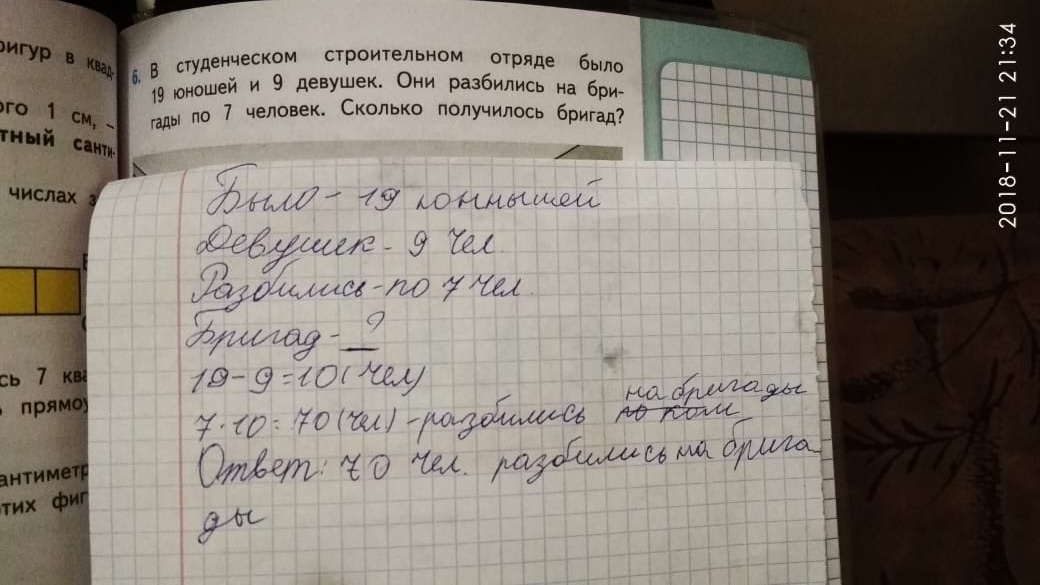 ригур в квад-
ого 1 см, –
тный санти-
числах з
сь 7 ква
прямоу
антиметр
этих фиг
6. В студенческом строительном отряде было
19 юношей и 9 девушек. Они разбились на бри-
гады по 7 человек. Сколько получилось бригад?
Было - 19 юнышей
Девушек - 9 чел.
Разбились - по 7 чел.
Бригад - ?
19-9=10(чел)
7·10=70(чел) - разбились на бригады
Ответ: 70 чел. разбились на брига
ды
2018-11-21 21:34